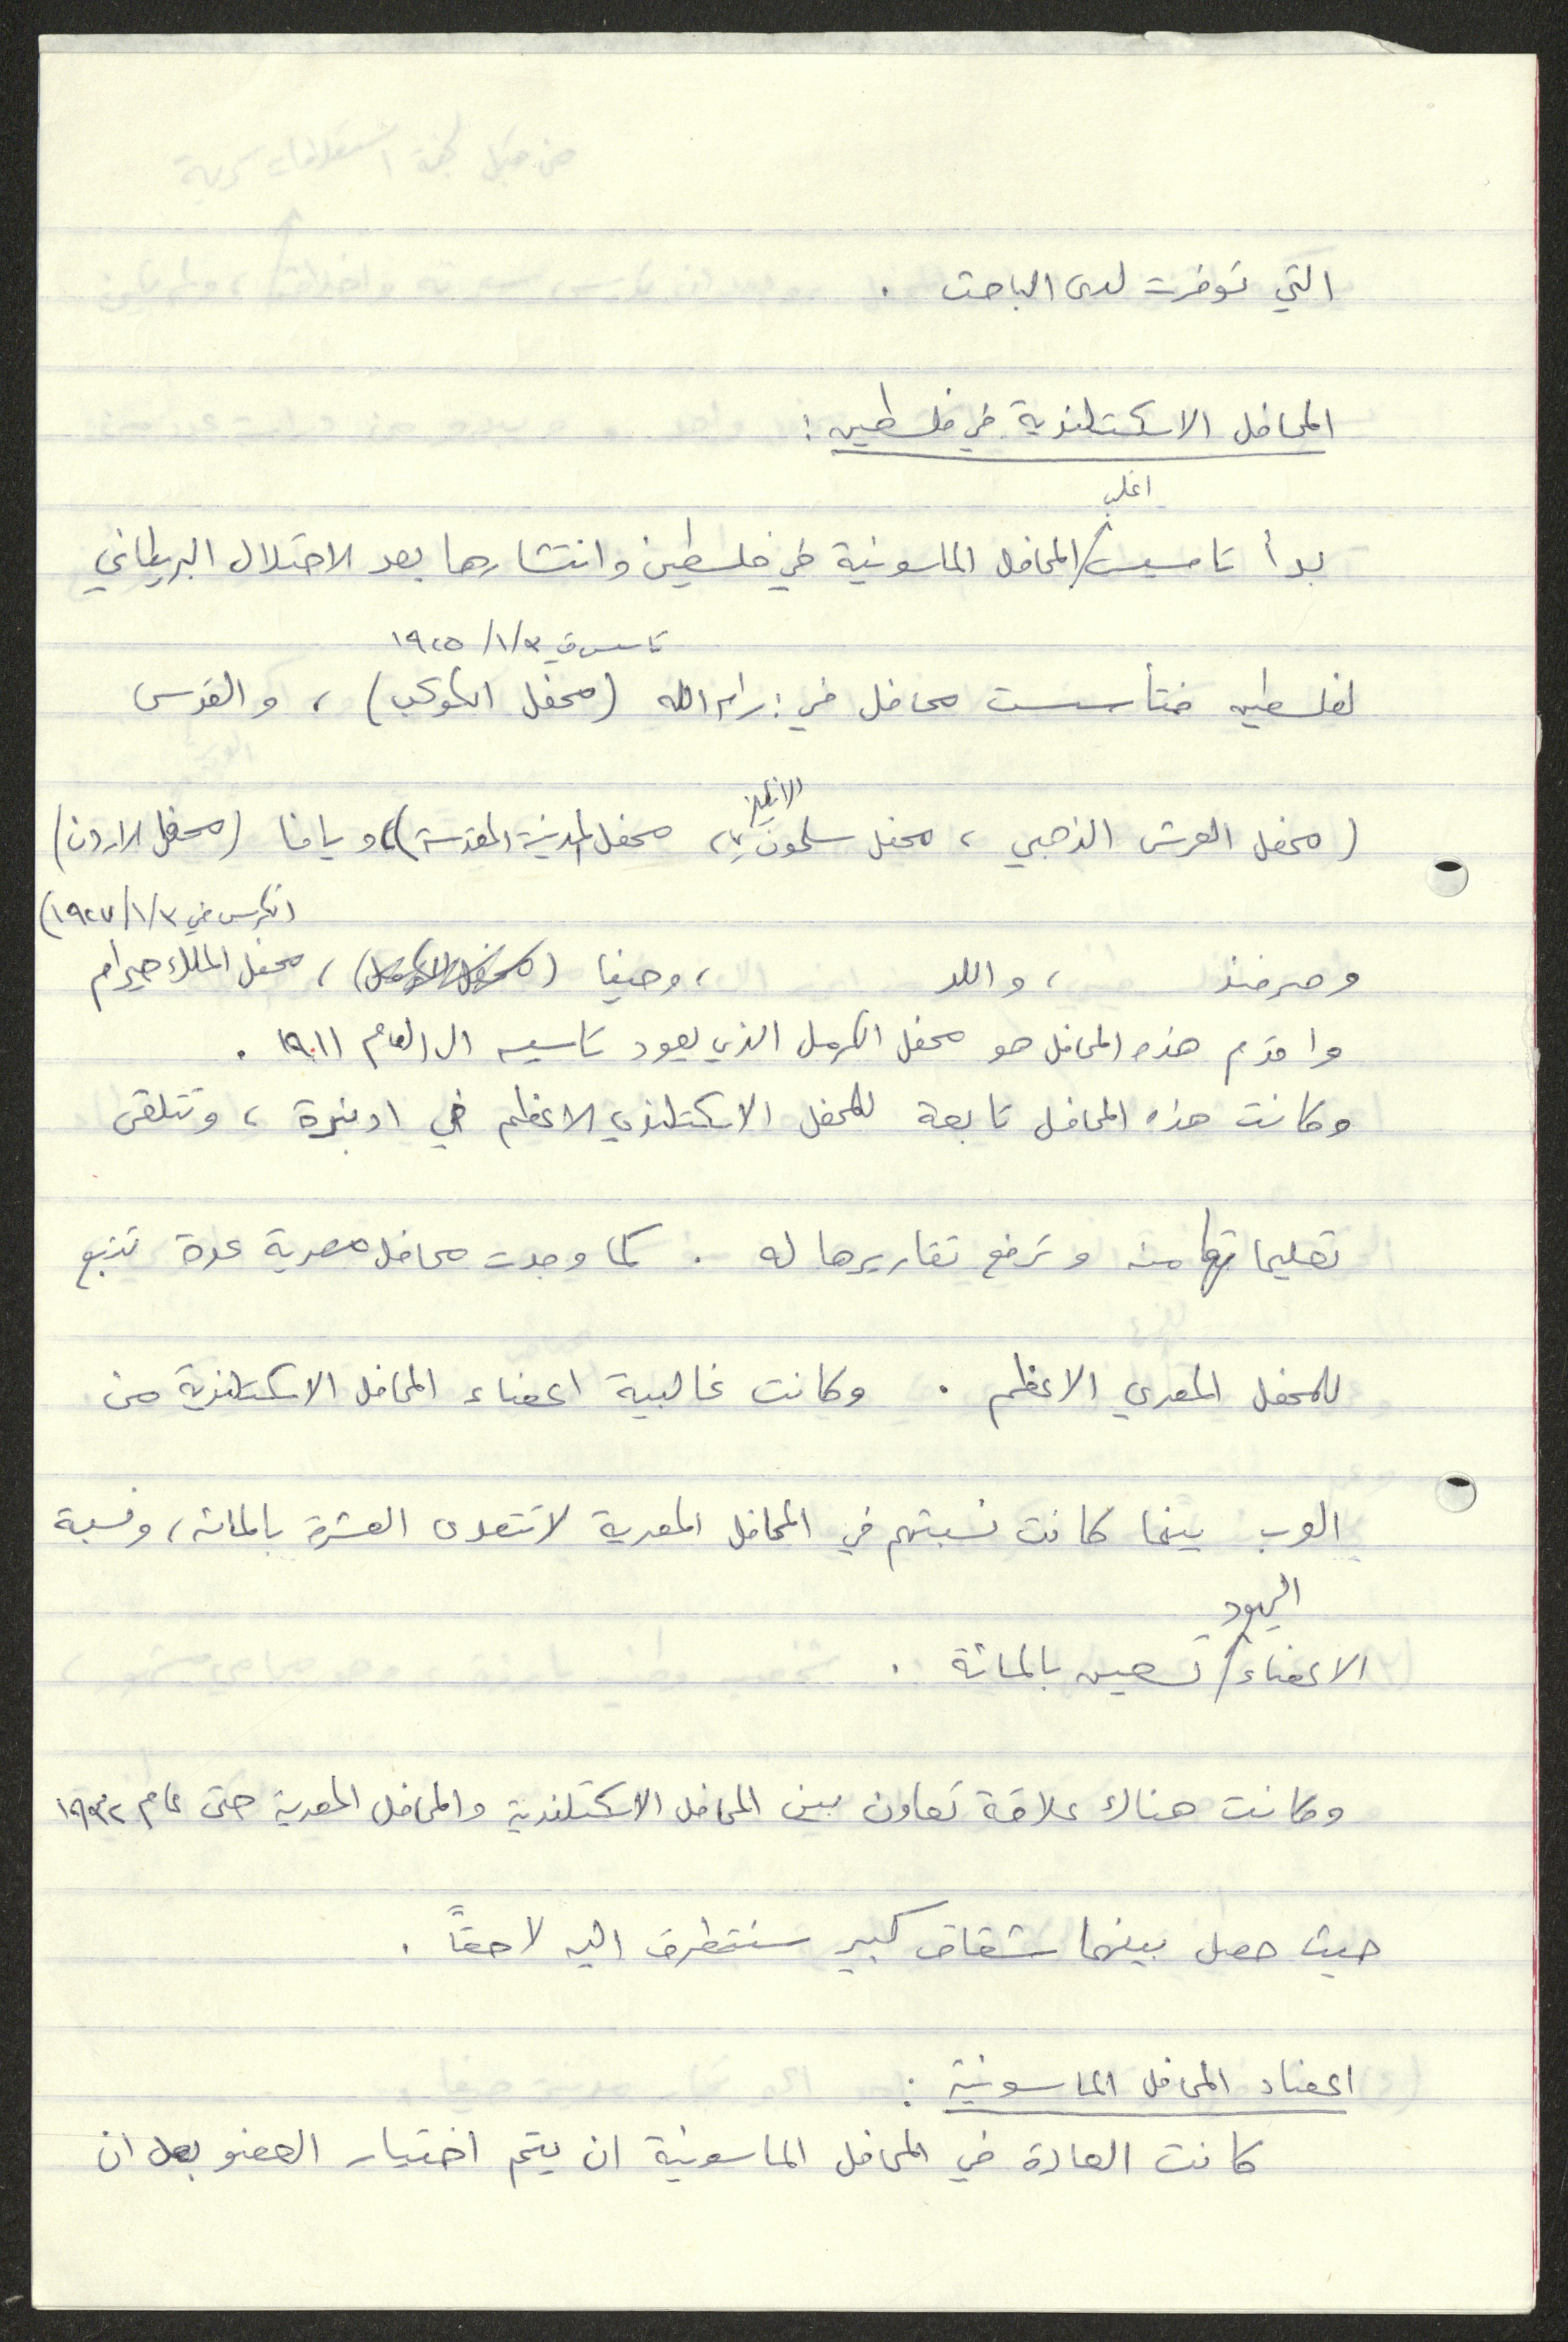 التي توفرت لدى الباحث .
المحافل الاسكتلندية في فلسطين :
اغلب
بدأ تاسيس المحافل الماسونية في فلسطين وانتشارها بعد الاحتلال البريطاني
تاسس في ٣/١/١٩٢٥
لفلسطين فتأسست محافل في : رام الله (محفل الكوكب) ، والقدس
(محفل العرش الذهبي ، محفل سلمون ، محفل المدينة المقدسة) ويافا (محفل الاردن)
(تكرس في ٣/١/١٩٢٧)
وصرفند ، واللد ، وحيفا ( ) ، محفل الملك حيرام
واقدم هذه المحافل هو محفل الكرمل الذي يعود تاسيسه الى العام ١٩١١ .
وكانت هذه المحافل تابعة للمحفل الاسكتلندي الاعظم في ادنبرة ، وتتلقى
تعليماتها منه وترفع تقاريرها له . كما وجدت محافل مصرية عدة تتبع
للمحفل المصري الاعظم . وكانت غالبية اعضاء المحافل الاسكتلندية من
العرب بينما كانت نسبتهم في المحافل المصرية لا تتعدى العشرة بالمائة ، ونسبة
اليهود
الاعضاء تسعين بالمائة .
وكانت هناك علاقة تعاون بين المحافل الاسكتلندية والمحافل المصرية حتى عام
حيث حصل بينهما شقاق كبير سنتطرق اليه لاحقاً .
اعضاء المحافل الماسونية :
كانت العادة في المحافل الماسونية ان يتم اختيار العضو بعد ان